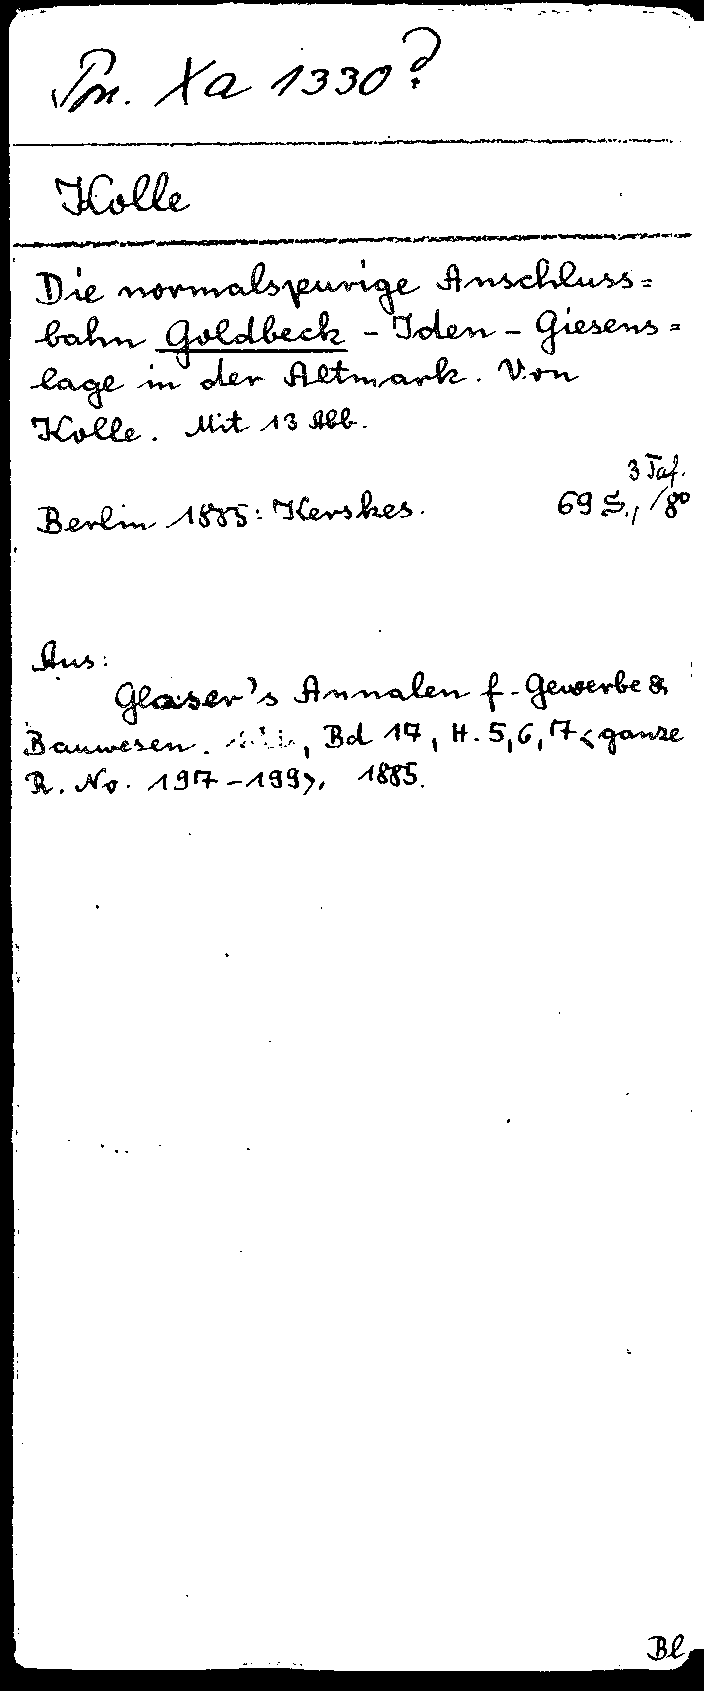 Pn. Xa 1330?
Kolle
Die normalspurige Anschluss=
bahn Goldbeck - Iden - Giesens=
lage in der Altmark. Von
Kolle. Mit 13 Abb.
3 Taf.
Berlin 1885: Kerskes. 69 S., / 8°
Aus:
Glaser's Annalen f. Gewerbe &
Bauwesen. , Bd 17, H. 5, 6, 7 <ganze
R. No. 197-199>, 1885.
Bl